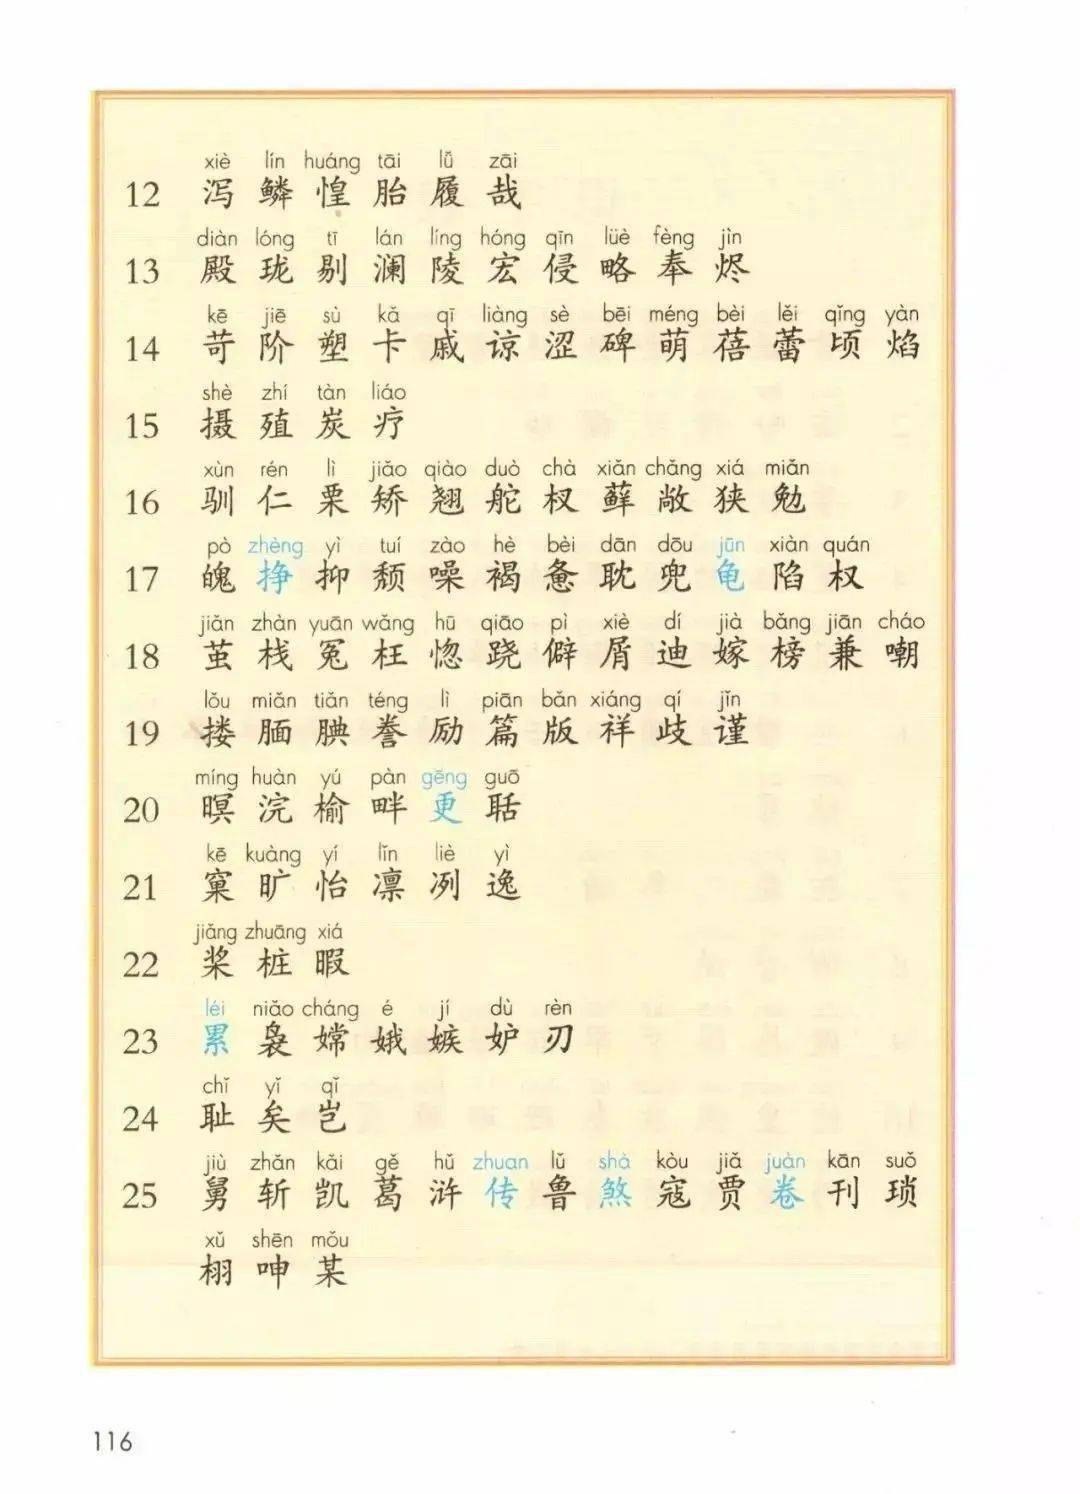 xiè lín huáng tāi lǚ zāi
12 泻 鳞 惶 胎 履 哉
diàn lóng tī lán líng hóng qīn lüè fèng jìn
13 殿 珑 剔 澜 陵 宏 侵 略 奉 烬
kē jiē sù kǎ qī liàng sè bēi méng bèi lěi qǐng yàn
14 苛 阶 塑 卡 戚 谅 涩 碑 萌 蓓 蕾 顷 焰
shè zhí tàn liáo
15 摄 殖 炭 疗
xùn rén lì jiǎo qiào duò chà xiǎn chǎng xiá miǎn
16 驯 仁 栗 矫 翘 舵 杈 藓 敞 狭 勉
pò zhèng yì tuí zào hè bèi dān dōu jūn xiàn quán
17 魄 挣 抑 颓 噪 褐 惫 耽 兜 龟 陷 权
jiǎn zhàn yuān wǎng hū qiāo pì xiè dí jià bǎng jiān cháo
18 茧 栈 冤 枉 惚 跷 僻 屑 迪 嫁 榜 兼 嘲
lǒu miǎn tiǎn téng lì piān bǎn xiáng qí jǐn
19 搂 腼 腆 誊 励 篇 版 祥 歧 谨
míng huàn yú pàn gēng guō
20 暝 浣 榆 畔 更 聒
kē kuàng yí lǐn liè yì
21 窠 旷 怡 凛 冽 逸
jiǎng zhuāng xiá
22 桨 桩 暇
léi niǎo cháng é jí dù rèn
23 累 袅 嫦 娥 嫉 妒 刃
chǐ yǐ qǐ
24 耻 矣 岂
jiù zhǎn kǎi gě hǔ zhuan lǔ shà kòu jiǎ juàn kān suǒ
25 舅 斩 凯 葛 浒 传 鲁 煞 寇 贾 卷 刊 琐
xǔ shēn mǒu
栩 呻 某
116